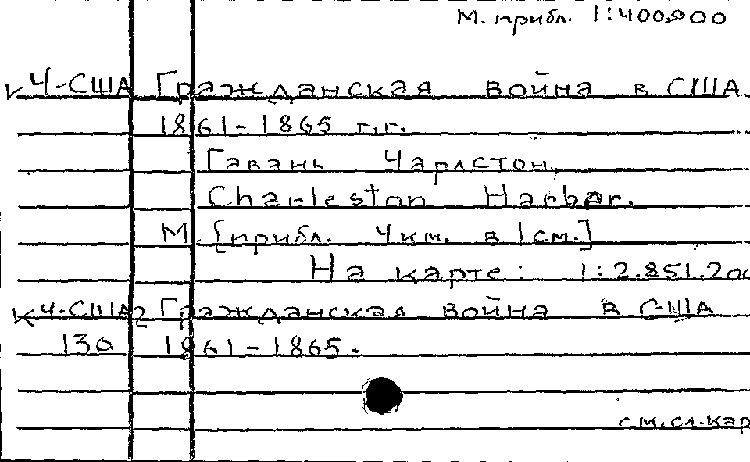 М. прибл. 1:400,000
к Ч-США Гражданская война в США.
1861-1865 г.г.
Гавань Чарлстон.
Charleston Harbor.
М. [прибл. 4 км. в 1 см.]
На карте: 1:2.851.200
к Ч-США2 Гражданская война в США
130 1861-1865.
см. сл. кар